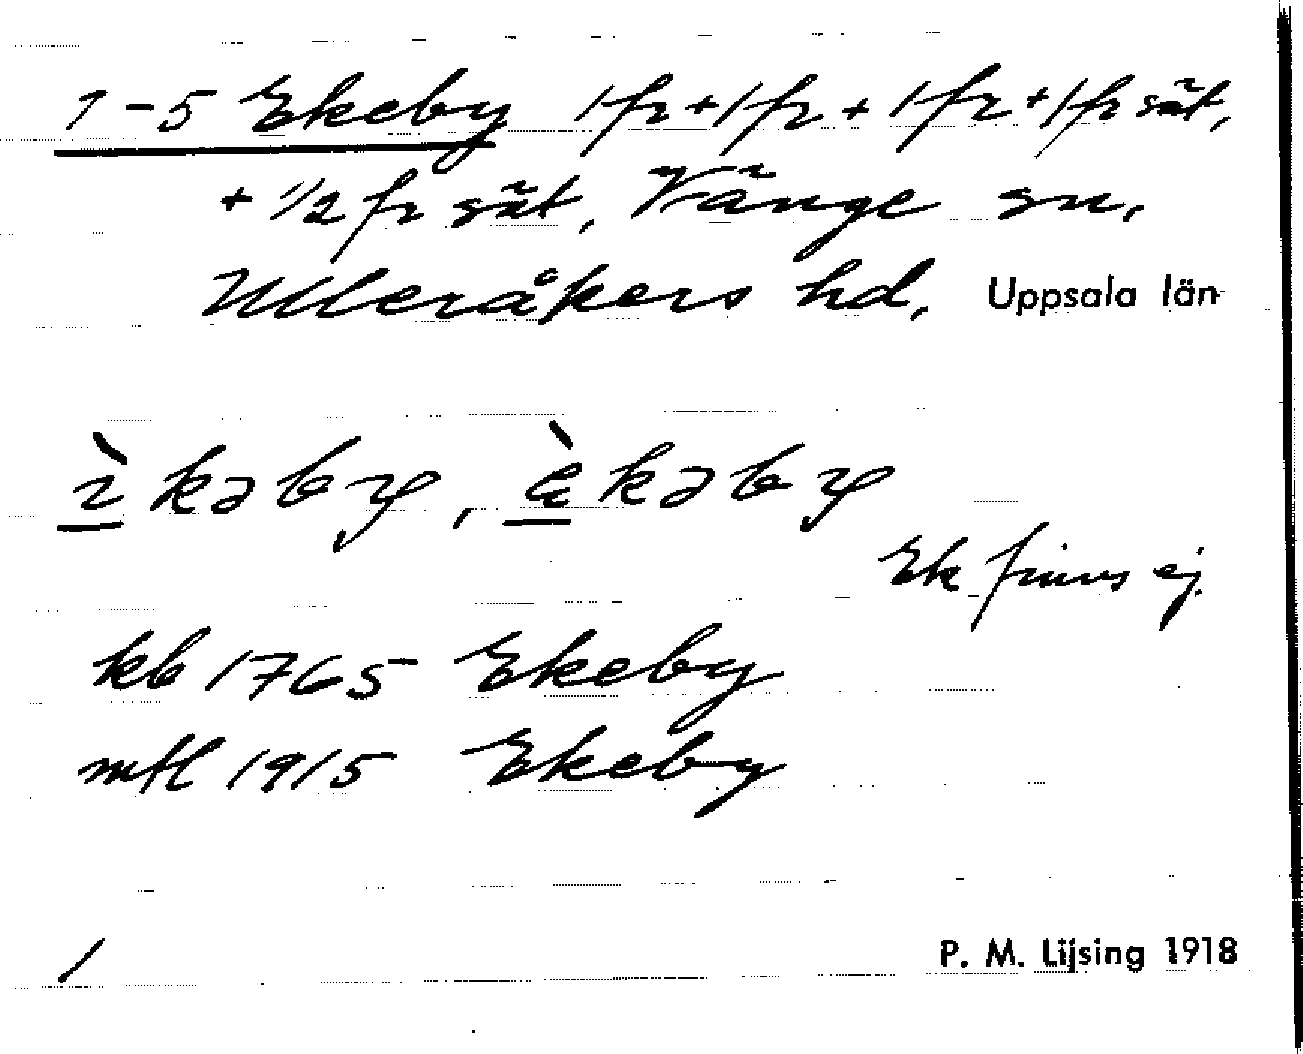 1-5 Ekeby 1 fr + 1 fr + 1 fr + 1 fr sät,
+ 1/2 fr sät, Vänge sn,
Ulleråkers hd, Uppsala län
ı̀kəby, ę̀kəby
Ek finns ej.
kb 1765 Ekeby
mtl 1915 Ekeby
/ P. M. Lijsing 1918